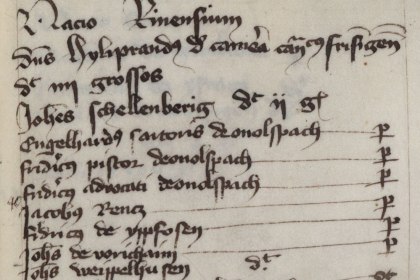 Nacio Rinensium
dns Hyliprandus de camera cancus frisingen
dt iiii grossos
Johes Schellenberig dt ij gl
Engelhardus sartoris de onolspach p
fridcus pistor de onolspach p
fridcus advocati de onolspach p
Jacobus Rencz p
fridricus de yppfosen p
Johs de vorchaim p
Johs weippelhusen dt